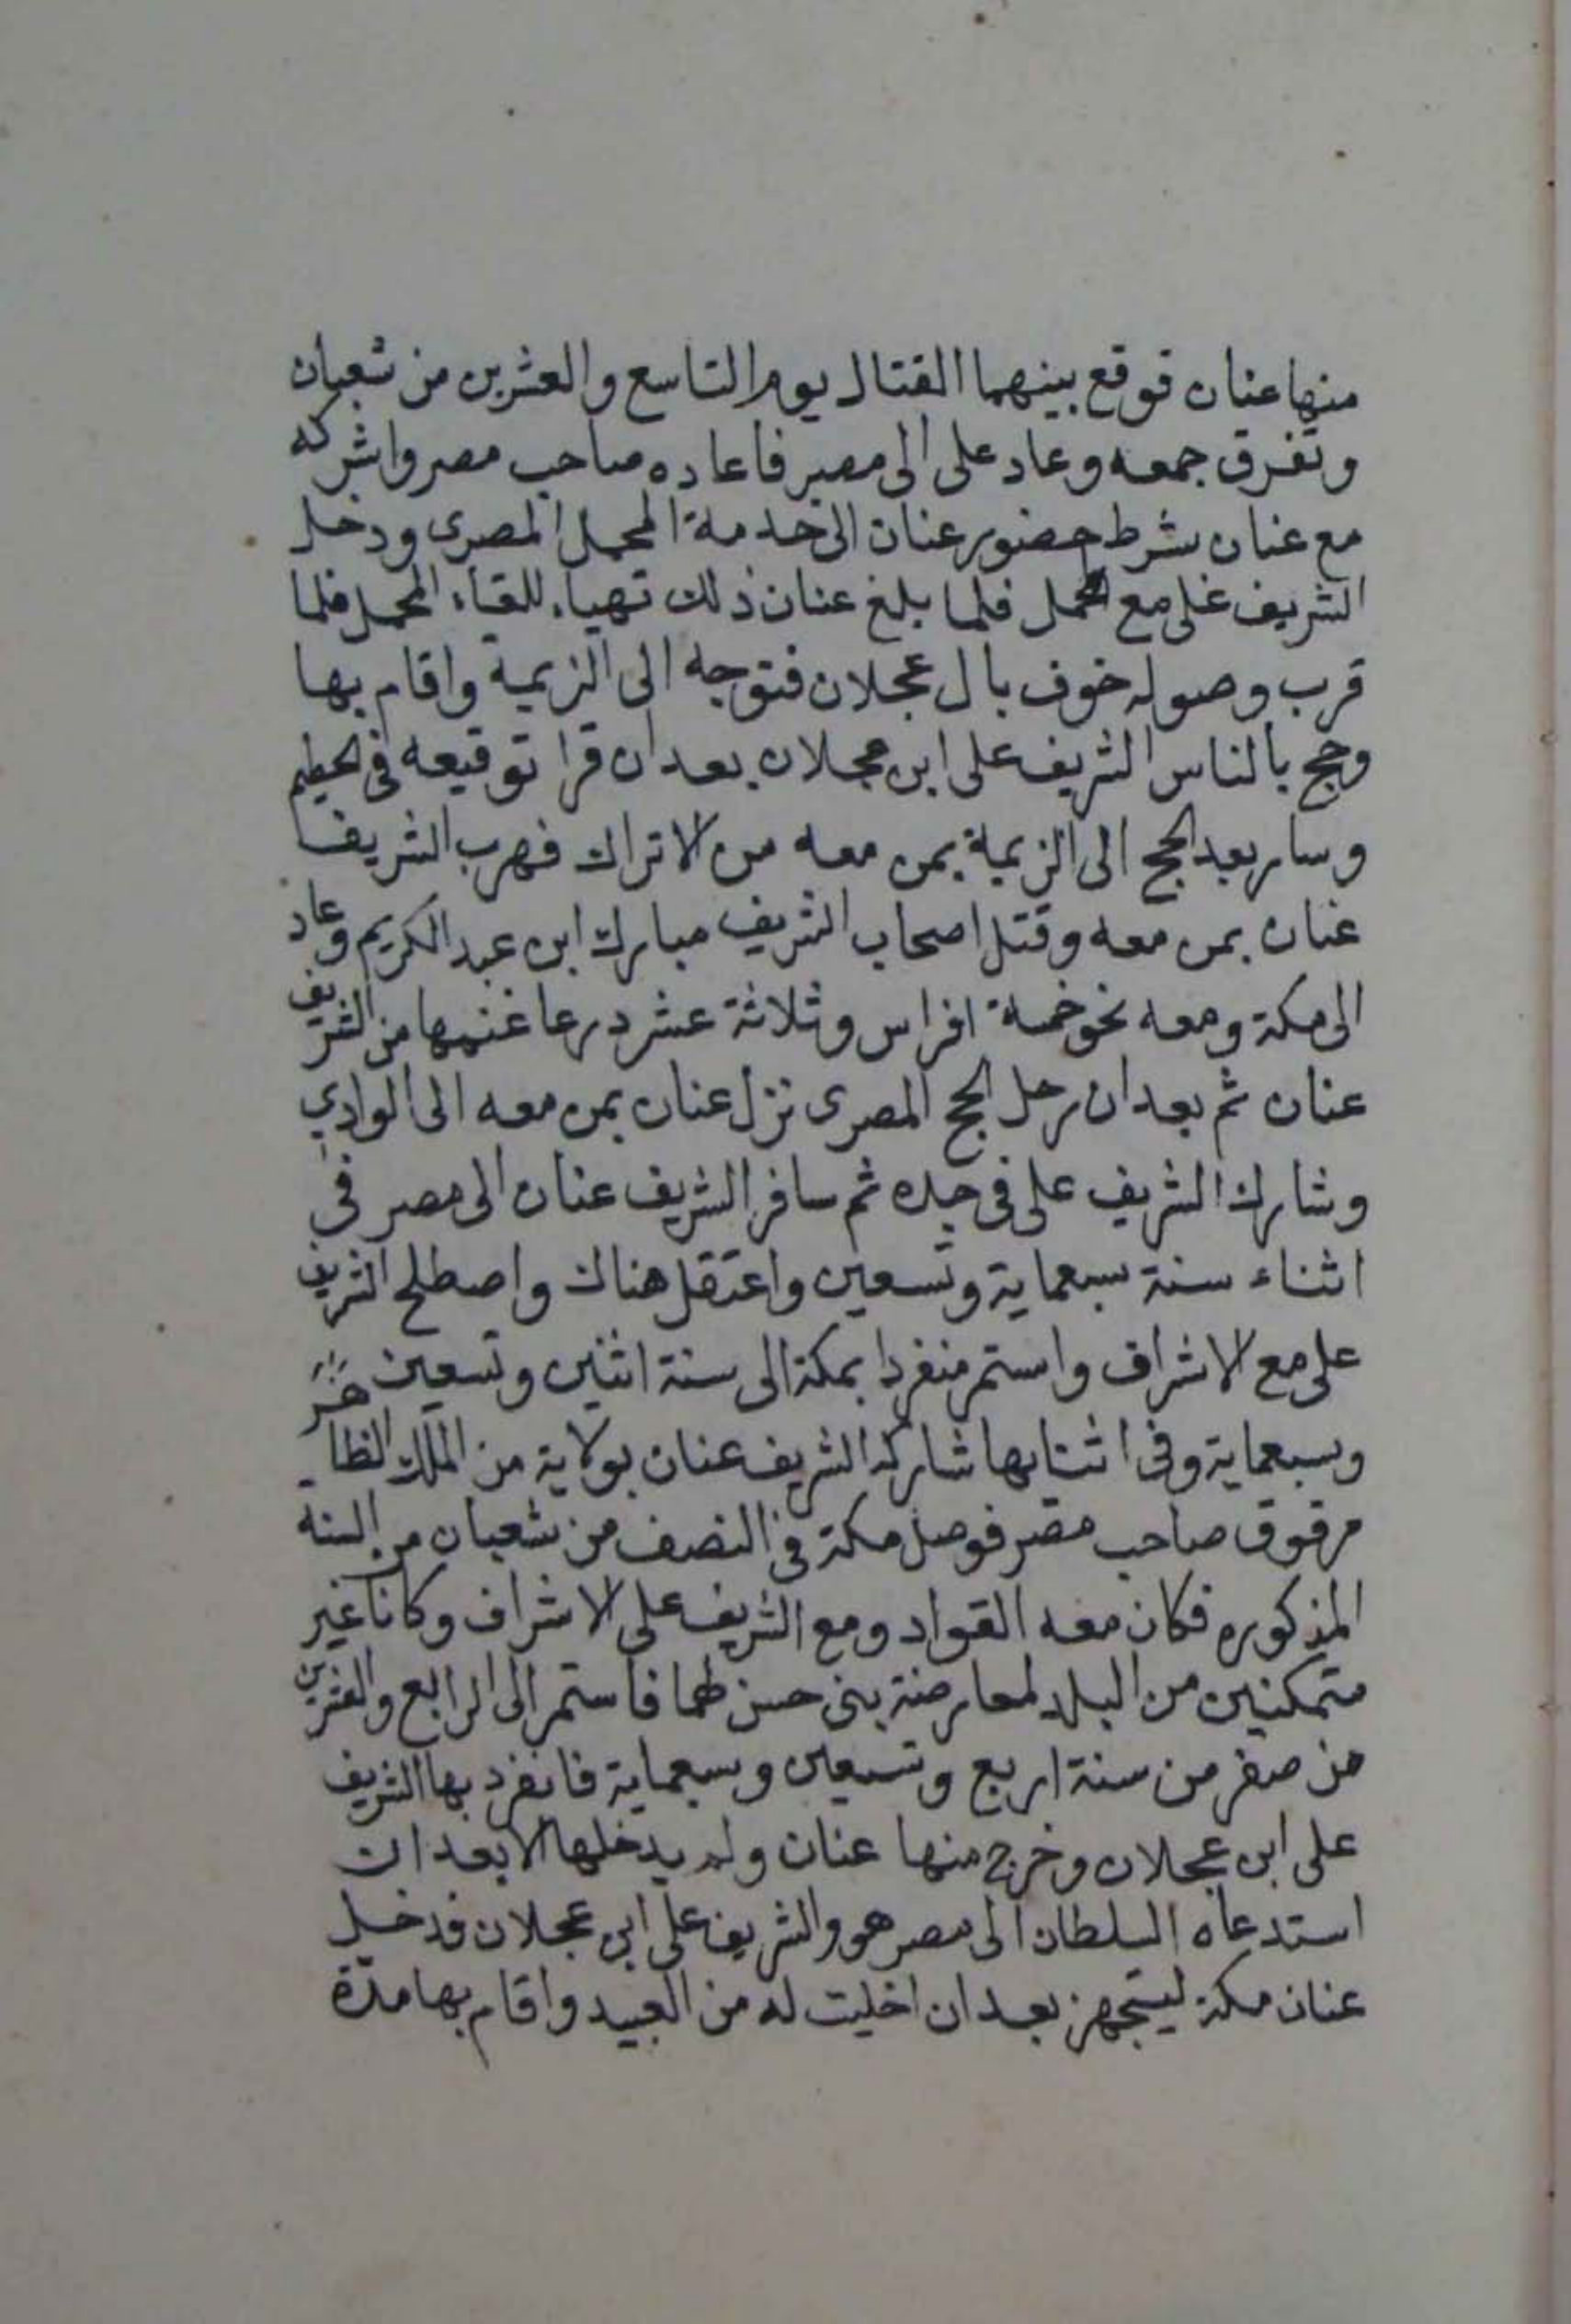 منها عنان فوقع بينهما القتال يوم التاسع والعشرين من شعبان
وتفرق جمعه وعاد على الى مصر فاعاده صاحب مصر واشركه
مع عنان بشرط حضور عنان الى خدمة المحمل المصرى ودخل
الشريف على مع المحمل فلما بلغ عنان ذلك تهياء للقاء المحمل فلما
قرب وصوله خوف بال عجلان فتوجه الى الزيمية واقام بها
وحج بالناس الشريف على ابن عجلان بعد ان قرا توقيعه فى الحطيم
وسار بعد الحج الى الزيمية بمن معه من الاتراك فهرب الشريف
عنان بمن معه وقتل اصحاب الشريف مبارك ابن عبد الكريم وعاد
الى مكة ومعه نحو خمسة افراس وثلاثة عشر درعا غنمها من الشريف
عنان ثم بعد ان رحل الحج المصرى نزل عنان بمن معه الى الوادي
وشارك الشريف على فى جده ثم سافر الشريف عنان الى مصر فى
اثناء سنة سبعماية وتسعين واعتقل هناك واصطلح الشريف
على مع الاشراف واستمر منفردا بمكة الى سنة اثنين وتسعين
وسبعماية وفى اثنايها شاركه الشريف عنان بولاية من الملك الظاهر
مرقوق صاحب مصر فوصل مكة فى النصف من شعبان من السنه
المذكوره فكان معه القواد ومع الشريف على الاشراف وكانا غير
متمكنين من البلد لمعارضة بنى حسن لهما فاستمر الى الرابع والعشرين
من صفر من سنة اربع وتسعين وسبعماية فانفرد بها الشريف
على ابن عجلان وخرج منها عنان ولم يدخلها الا بعد ان
استدعاه السلطان الى مصر هو والشريف على ابن عجلان فدخل
عنان مكة ليتجهز بعد ان اخليت له من العبيد واقام بها مدة